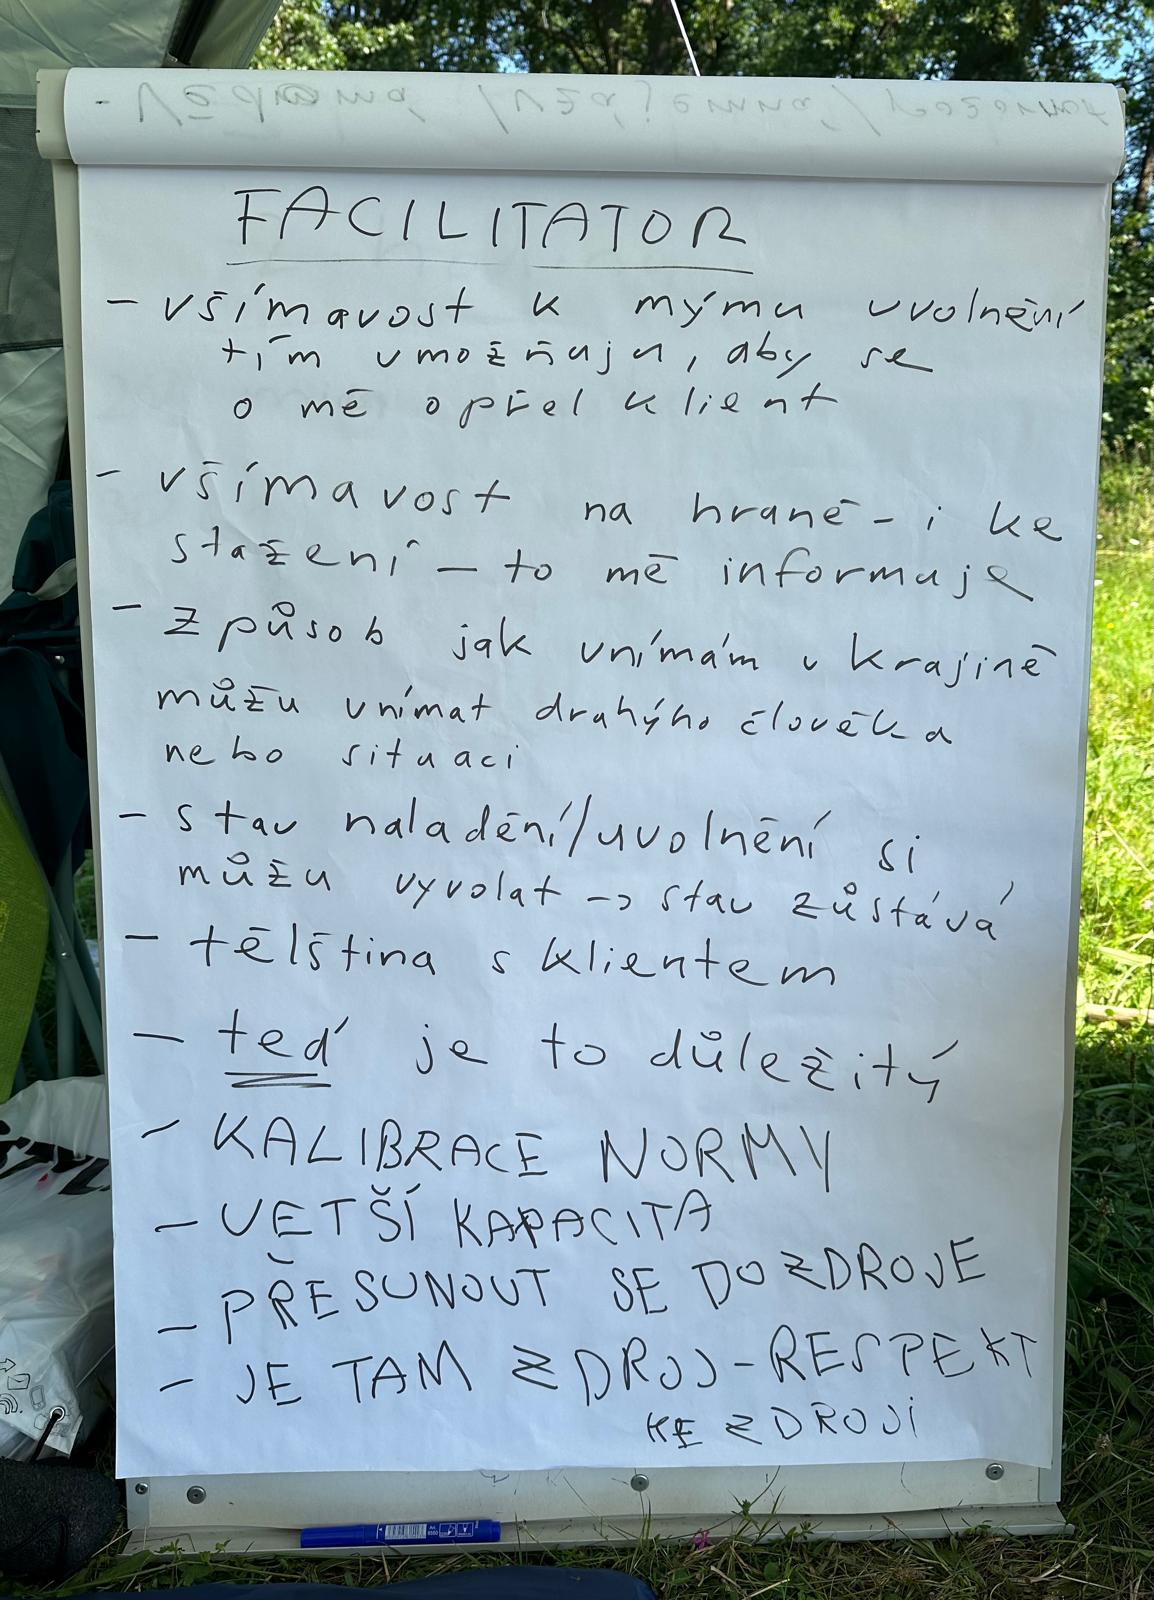 - Vědomá /vzájemná/ pozornost
FACILITATOR
- všímavost k mýmu uvolnění
tím umožňuju, aby se
o mě opřel klient
- všímavost na hraně - i ke
stažení - to mě informuje
- způsob jak vnímám v krajině
můžu vnímat druhýho člověka
nebo situaci
- stav naladění/uvolnění si
můžu vyvolat -> stav zůstává
- tělština s klientem
- teď je to důležitý
- KALIBRACE NORMY
- VETŠÍ KAPACITA
- PŘESUNOUT SE DO ZDROJE
- JE TAM ZDROJ - RESPEKT
KE ZDROJI